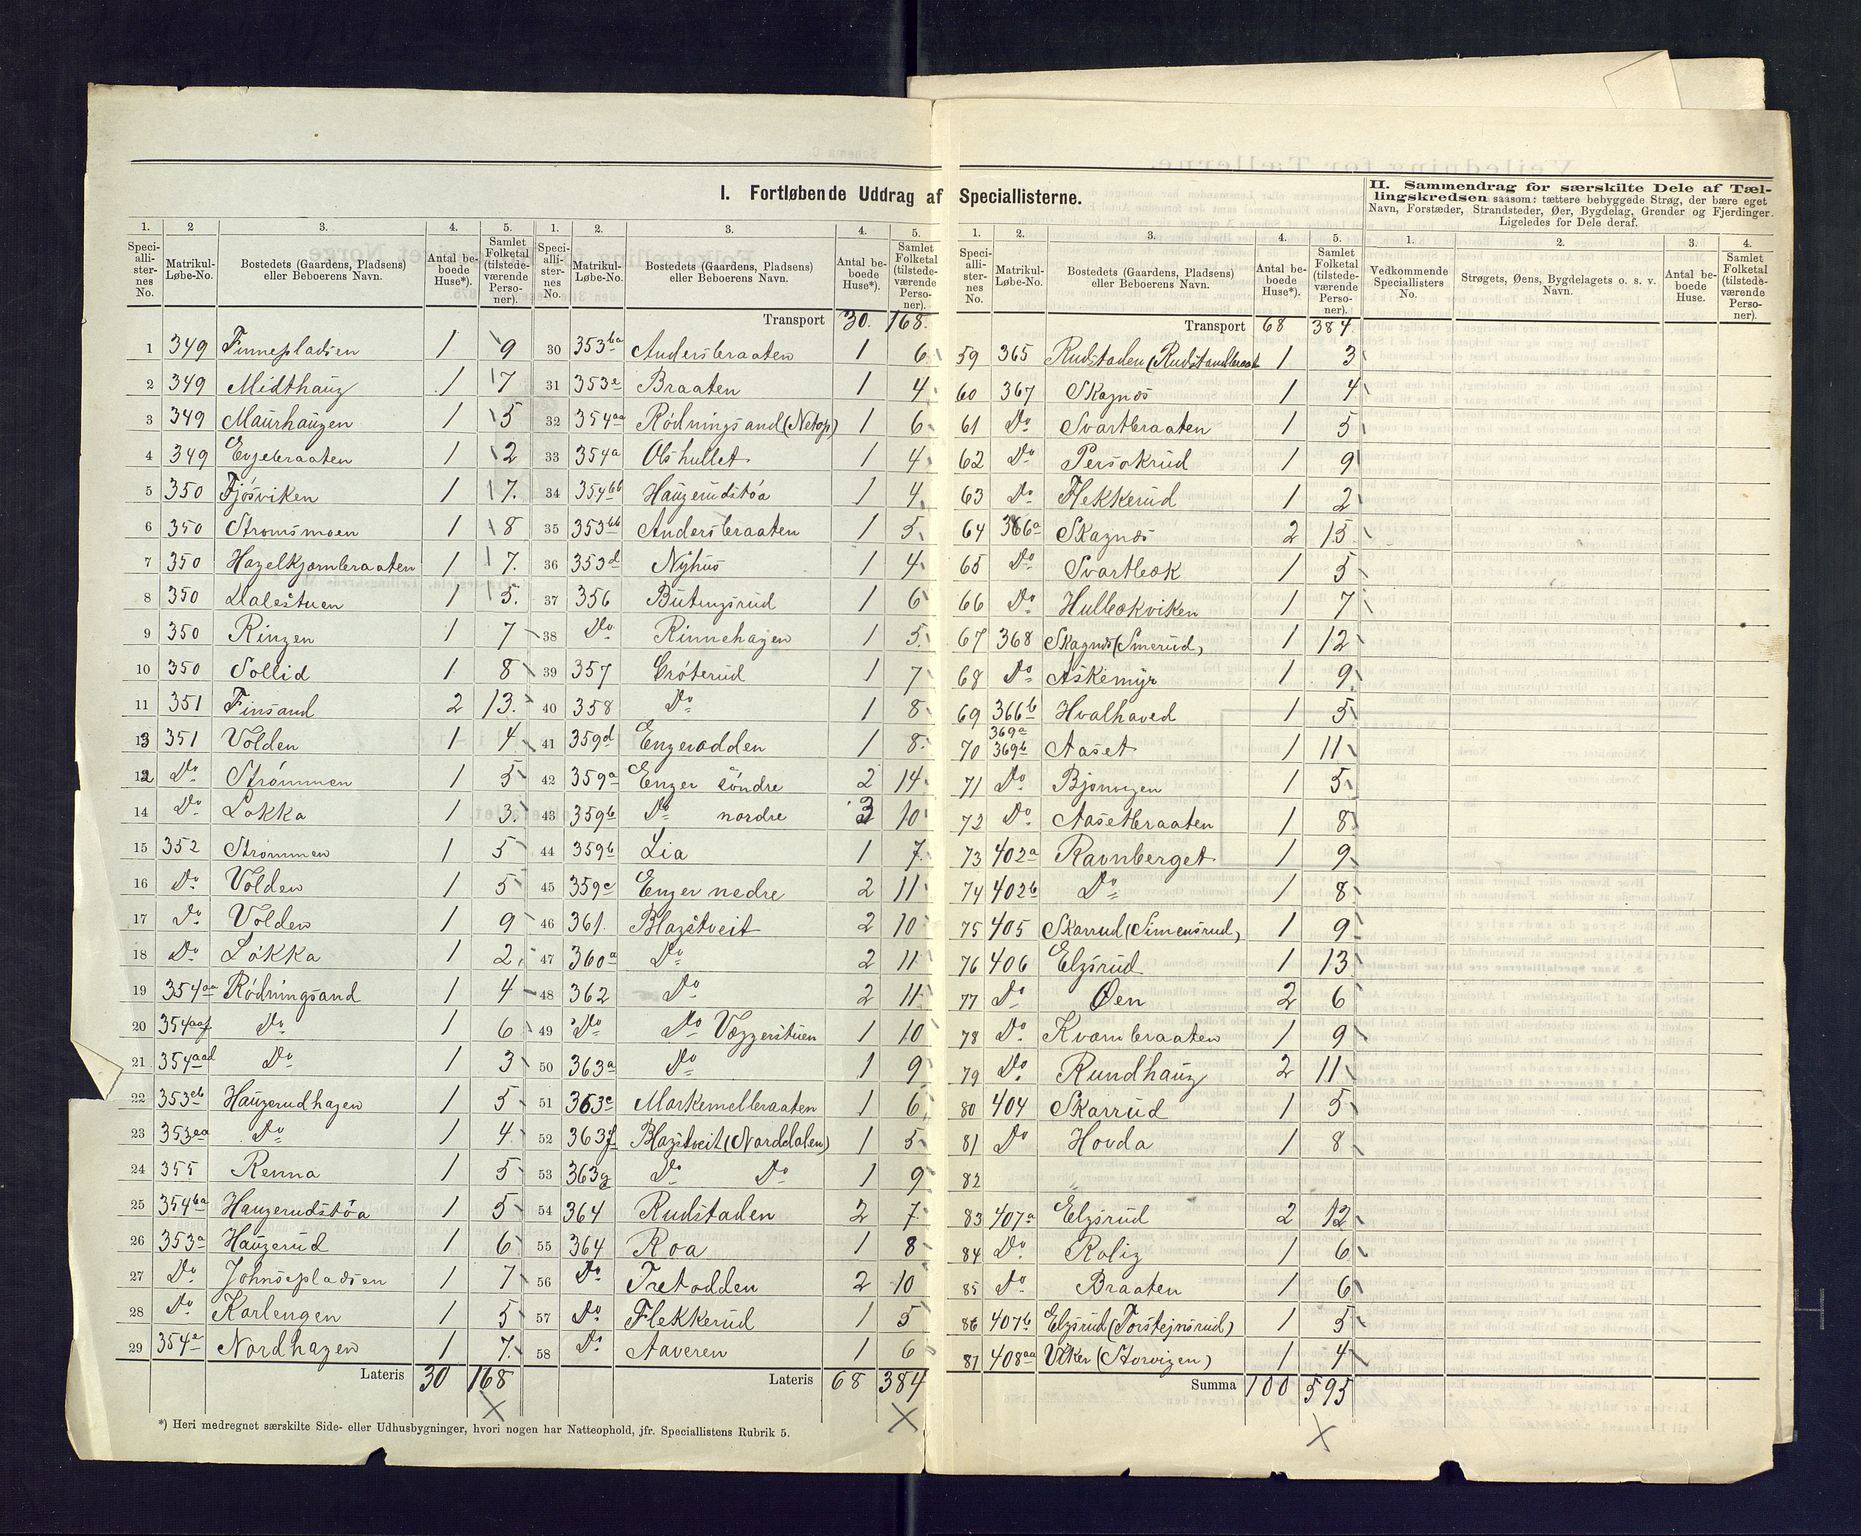 I. Fortløbende Uddrag af Speciallisterne.
II. Sammendrag for særskilte Dele af Tællingskredsen saasom: tættere bebyggede Strøg, der bære eget Navn, Forstæder, Strandsteder, Øer, Bygdelag, Grender og Fjerdinger. Ligeledes for Dele deraf.
1. 2 3. 4. 5. 1. 2. 3. 4. 5.
Speciallisternes No. Matrikul-Løbe-No. Bostedets (Gaardens, Pladsens) eller Beboerens Navn. Antal beboede Huse*). Samlet Folketal (tilstedeværende Personer).
Transport 30. 168.
1 349 Finnepladsen 1 9
2 349 Midthaug 1 7
3 349 Maurhaugen 1 5
4 349 Evjebraaten 1 2
5 350 Fjøsviken 1 7.
6 350 Strømsmoen 1 8
7 350 Hagelkjærnbraaten 1 7.
8 350 Dalestuen 1 5.
9 350 Ringen 1 7
10 350 Sollid 1 8
11 351 Finsand 2 13.
13 351 Volden 1 4
12 Do Strømmen 1 5
14 Do Løkka 1 3.
15 352 Strømmen 1 5
16 Do Volden 1 5
17 Do Volden 1 9
18 Do Løkka 1 2
19 354aa Rødningsand 1 4
20 354aaf Do 1 6
21 354aad Do 1 3
22 353eb Haugerudhagen 1 5
23 353ea Do 1 4
24 355 Renna 1 5
25 354ba Haugerudstøa 1 5
26 353a Haugerud 1 6
27 Do Johnsepladsen 1 7
28 Do Karlengen 1 5
29 354e Nordhagen 1 7.
Lateris 30 168
30 353ba Andersbraaten 1 6
31 353e Braaten 1 4
32 354aa Rødningsand (Netop) 1 6
33 354a Olshullet 1 4
34 354bb Haugerudstøa 1 4
35 353bb Andersbraaten 1 5
36 353d Nyhus 1 4
37 356 Butingsrud 1 6
38 Do Rinnehagen 1 5
39 357 Grøterud 1 7
40 358 Do 1 8
41 359d Engerodden 1 8
42 359a Enger söndre 2 14
43 359b Do nordre 3 10
44 359b Lia 1 7
45 359c Enger nedre 2 11
46 361. Blagstveit 2 10
47 360a Do 2 11
48 362 Do 2 11
49 Do Do Væggerstuen 1 10
50 363a Do 1 9
51 363e Markemelbraaten 1 6
52 363f Blagstveit (Norddalen) 1 5
53 363g Do Do 1 9
54 364 Rudstaden 2 7
55 364 Roa 1 8
56 Do Tretodden 2 10
57 Do Flekkerud 1 5
58 Do Aaveren 1 6
Lateris 68 384
1. 2. 3. 4. 5.
Speciallisternes No. Matrikul-Løbe-No. Bostedets (Gaardens, Pladsens) eller Beboerens Navn. Antal beboede Huse*). Samlet Folketal (tilstedeværende Personer).
Transport 68 384
59 365 Rudstaden (Rudstandbraat 1 3
60 367 Skagnæs 1 4
61 Do Svartbraaten 1 5
62 Do Persokrud 1 9
63 Do Flekkerud 1 2
64 366a Skagnæs 2 15
65 Do Svartbæk 1 5
66 Do Hulbækviken 1 7
67 368 Skagnæs (Smerud) 1 12
68 Do Askemyr 1 9
69 366b Hvalhaved 1 5
70 369a 369b Aaset 1 11
71 Do Bjønvigen 1 5
72 Do Aasetbraaten 1 8
73 402a Ravnberget 1 9
74 402b Do 1 8
75 405 Skarrud (Simensrud) 1 9
76 406 Elgsrud 1 13
77 Do Øen 2 6
78 Do Kvernbraaten 1 9
79 Do Rundhaug 2 11
80 404 Skarrud 1 5
81 Do Hovda 1 8
82
83 407a Elgsrud 2 12
84 Do Rolig 1 6
85 Do Braaten 1 6
86 407b Elgsrud (Torstejnsrud) 1 5
87 408aa Viker (Storvigen) 1 4
Summa 100 595
1. 2. 3. 4.
Vedkommende Speciallisters No. Strøgets, Øens, Bygdelagets o. s. v. Navn. Antal beboede Huse. Samlet Folketal (tilstedeværende Personer).
*) Heri medregnet særskilte Side- eller Udhusbygninger, hvori nogen har Natteophold, jfr. Speciallistens Rubrik 5.